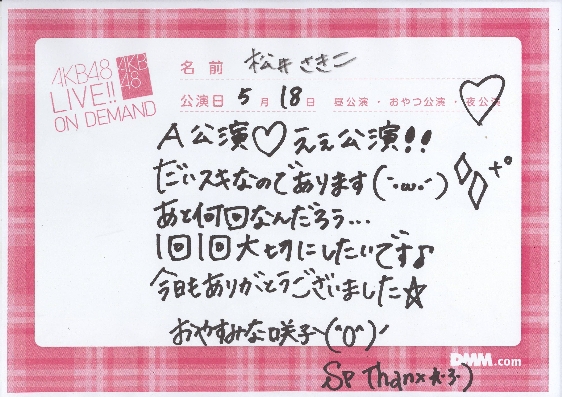 AKB48
LIVE!!
ON DEMAND
AKB
48
名前 松井さきこ
公演日 5月18日 昼公演・おやつ公演・夜公演
A公演♡ええ公演!!
だいスキなのであります(´・ω・`)
あと何回なんだろう...
1回1回大切にしたいです♪
今日もありがとうございました☆
おやすみな咲子〜(^O^)ノ
DMM.com